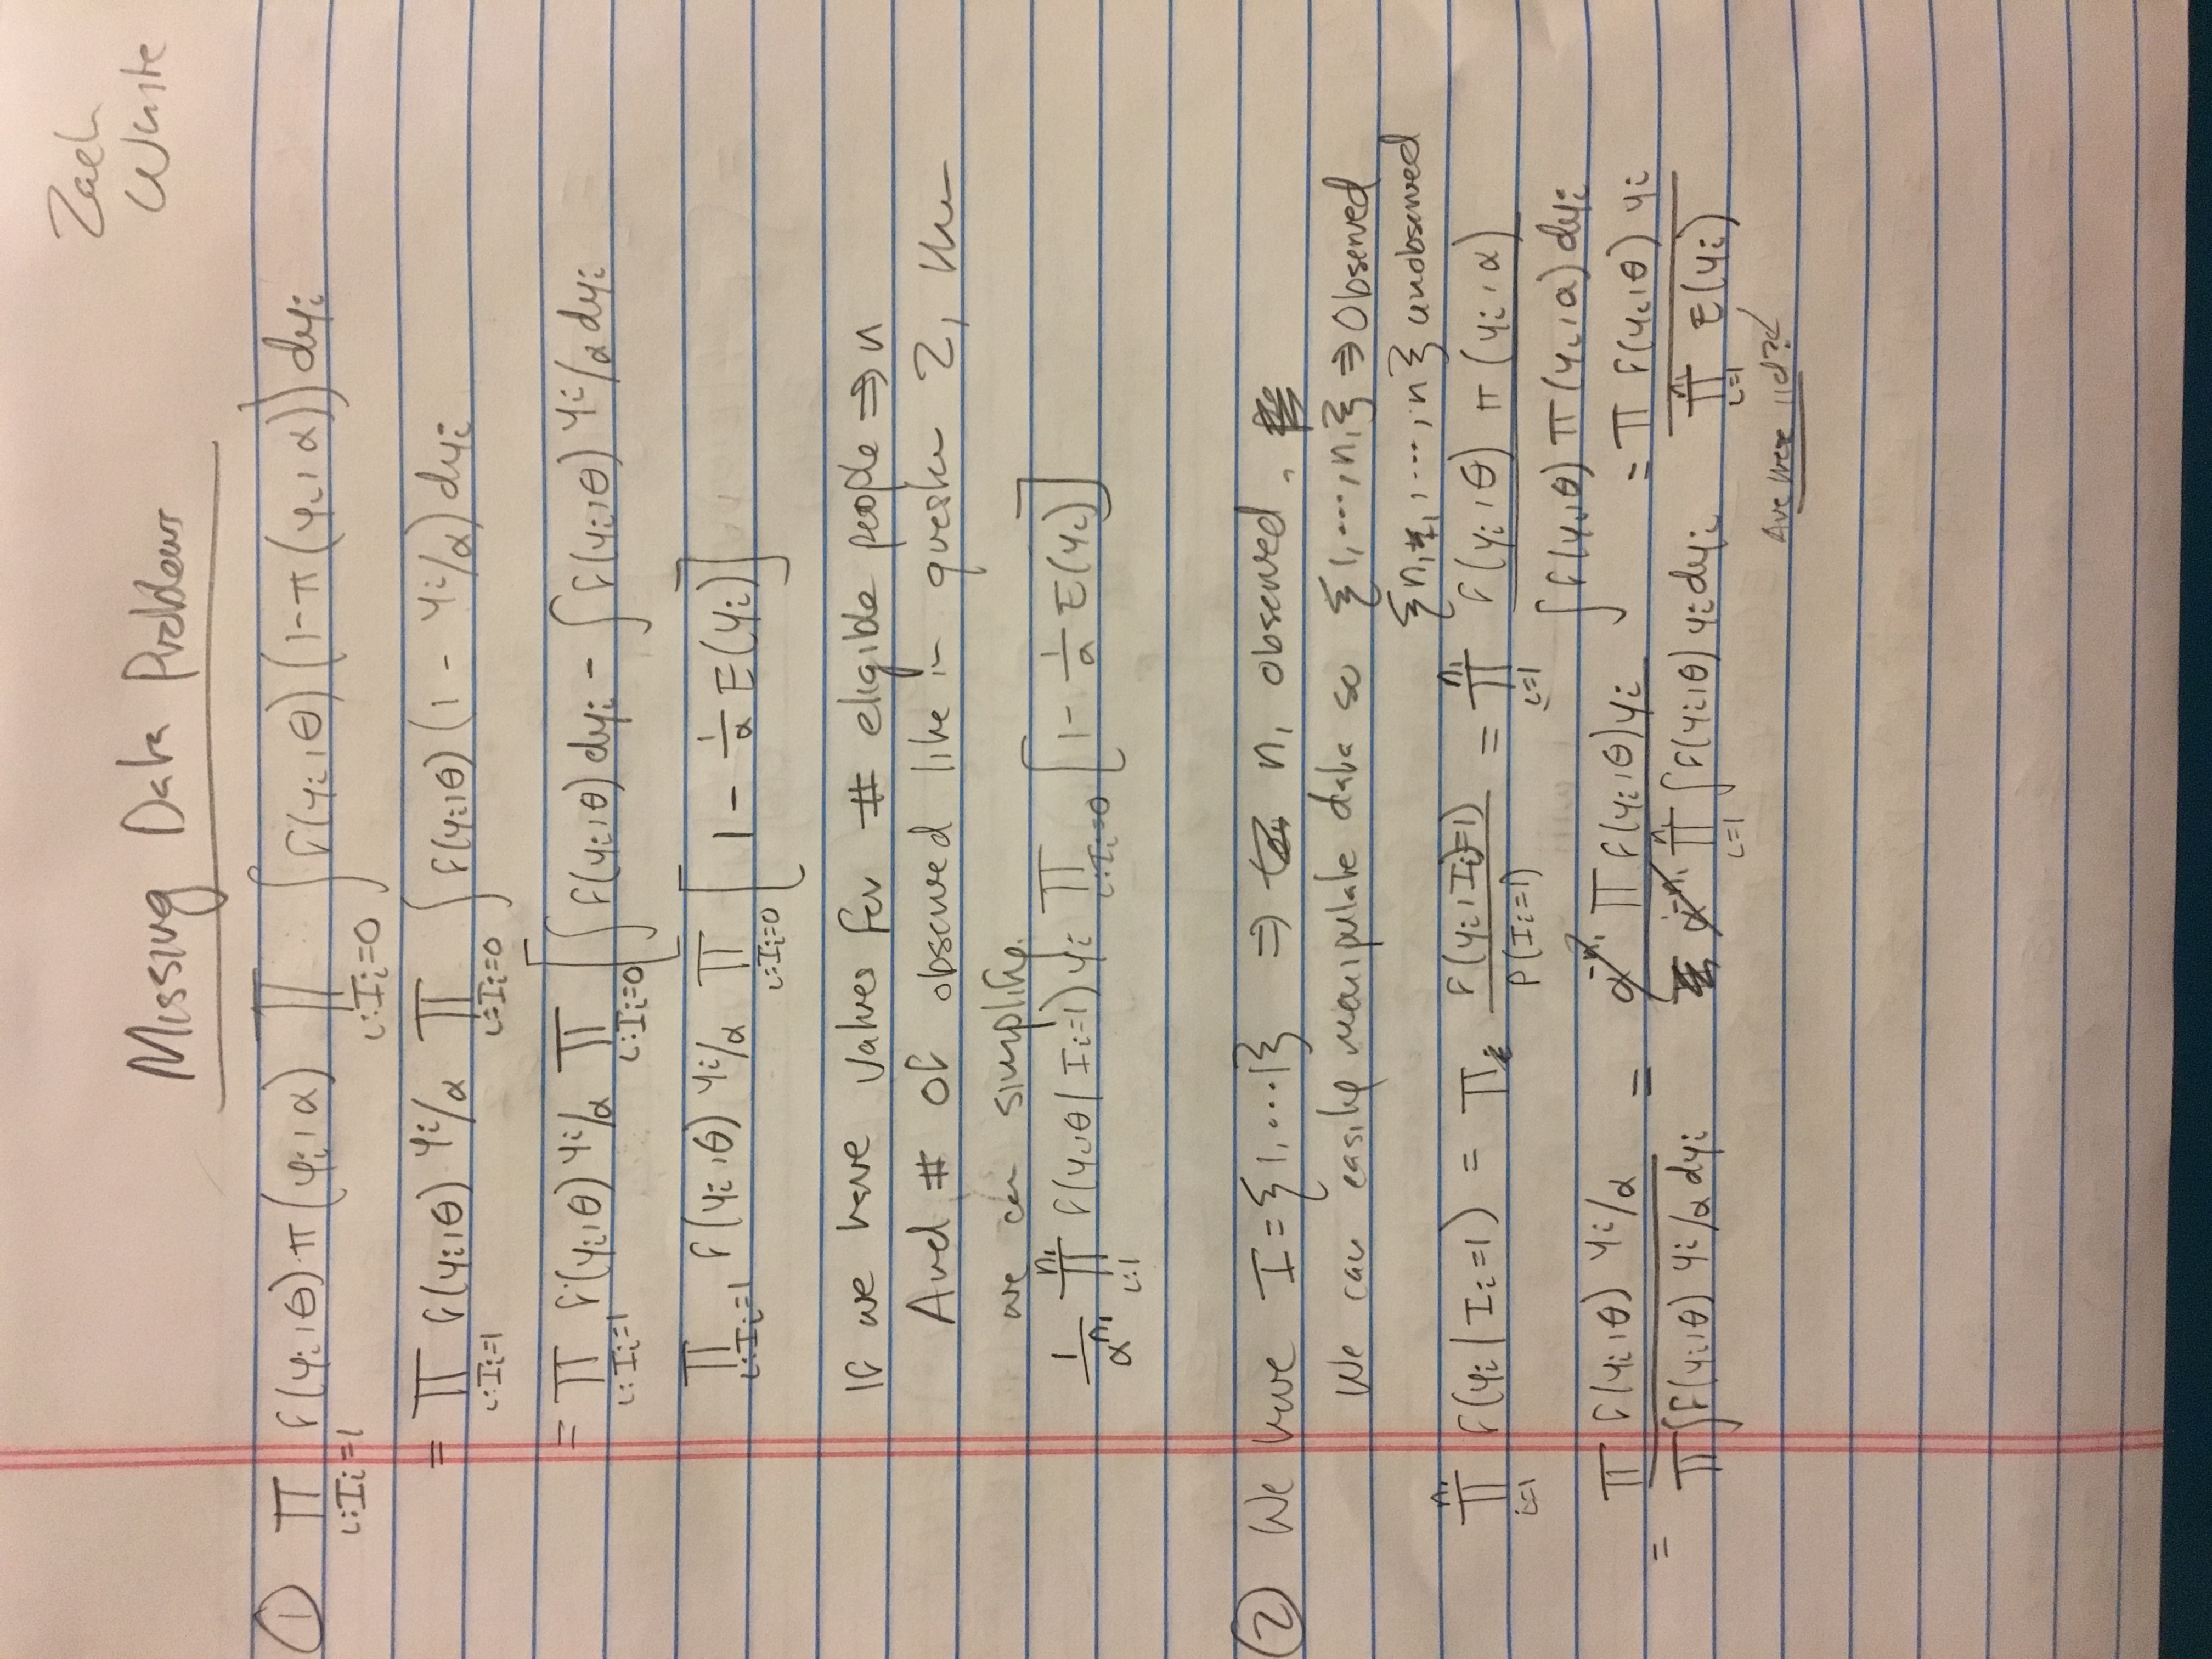 Zach
White
Missing Data Problems
① ∏_{i:I_i=1} f(y_i,θ)·π(y_i,α) ∏_{i:I_i=0} ∫f(y_i,θ)(1-π(y_i,α))dy_i
= ∏_{i:I_i=1} f(y_i,θ) y_i/α ∏_{i:I_i=0} ∫f(y_i,θ)(1 - y_i/α)dy_i
= ∏_{i:I_i=1} f(y_i,θ) y_i/α ∏_{i:I_i=0} [∫f(y_i,θ)dy_i - ∫f(y_i,θ) y_i/α dy_i
∏_{i:I_i=1} f(y_i,θ) y_i/α ∏_{i:I_i=0} [1 - 1/α E(y_i)]
If we have values for # eligible people ⇒ n
And # of observed like in question 2, then
we can simplify.
1/α^{n_1} ∏_{i:1}^{n_1} f(y_i,θ|I_i=1) y_i ∏_{i:I_i=0} [1 - 1/α E(y_i)]
② We have I={1,...1} ⇒ n_1 observed.
We can easily manipulate data so {1,...,n_1} ⇒ Observed
{n_1+1,...,n} unobserved
∏_{i=1}^{n_1} f(y_i|I_i=1) = ∏ f(y_i,I_i=1)/P(I_i=1) = ∏_{i=1}^{n_1} f(y_i,θ) π(y_i,α) / ∫f(y_i,θ) π(y_i,α)dy_i
= ∏ f(y_i,θ) y_i/α / ∏∫f(y_i,θ) y_i/α dy_i = α^{-n_1} ∏ f(y_i,θ)y_i / α^{-n_1} ∏_{i=1}^{n_1} ∫f(y_i,θ) y_i dy_i = ∏ f(y_i,θ) y_i / ∏_{i=1}^{n_1} E(y_i)
Are these iid?